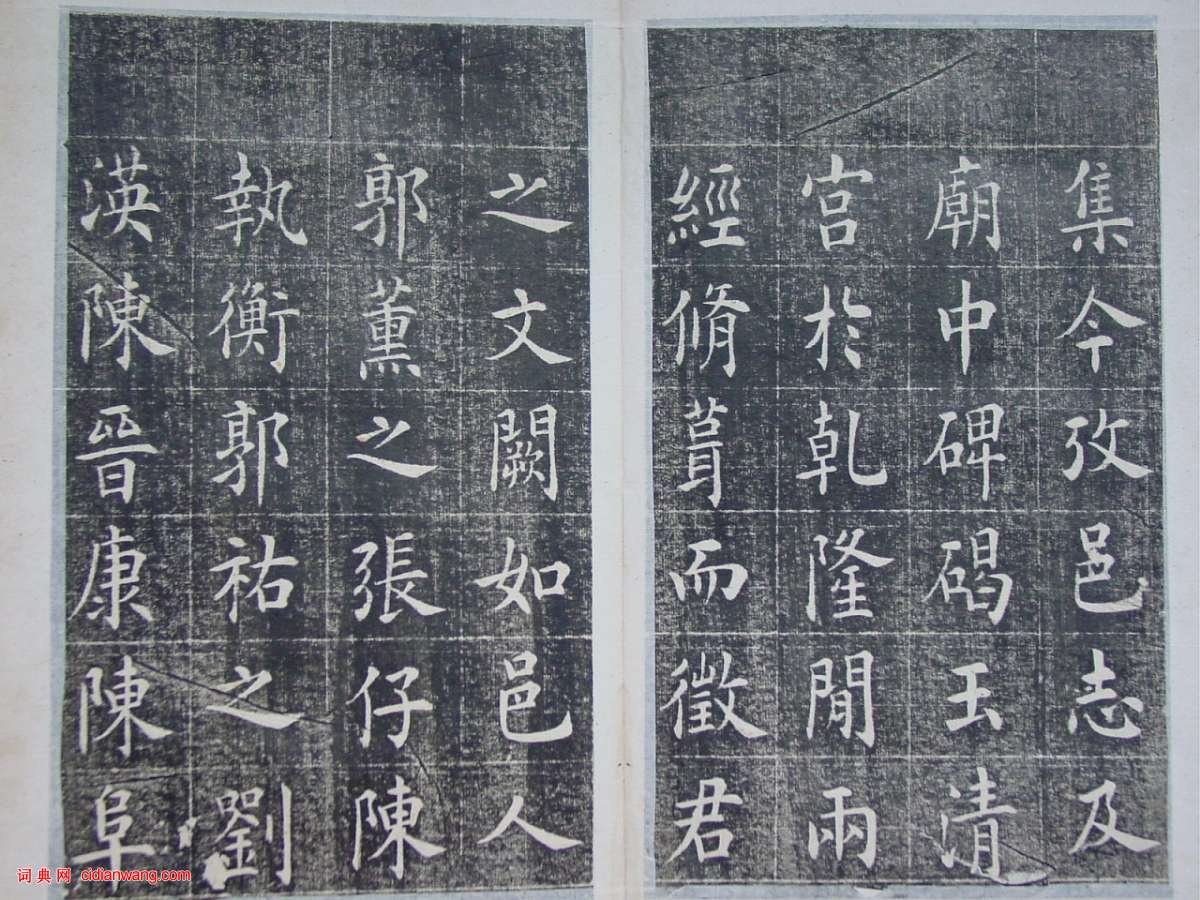 集今攷邑志及
廟中碑碣玉清
宫於乾隆閒兩
經脩葺而徵君
之文闕如邑人
郭薰之張仔陳
執衡郭祐之劉
渶陳晉康陳阜
词典网 cidianwang.com